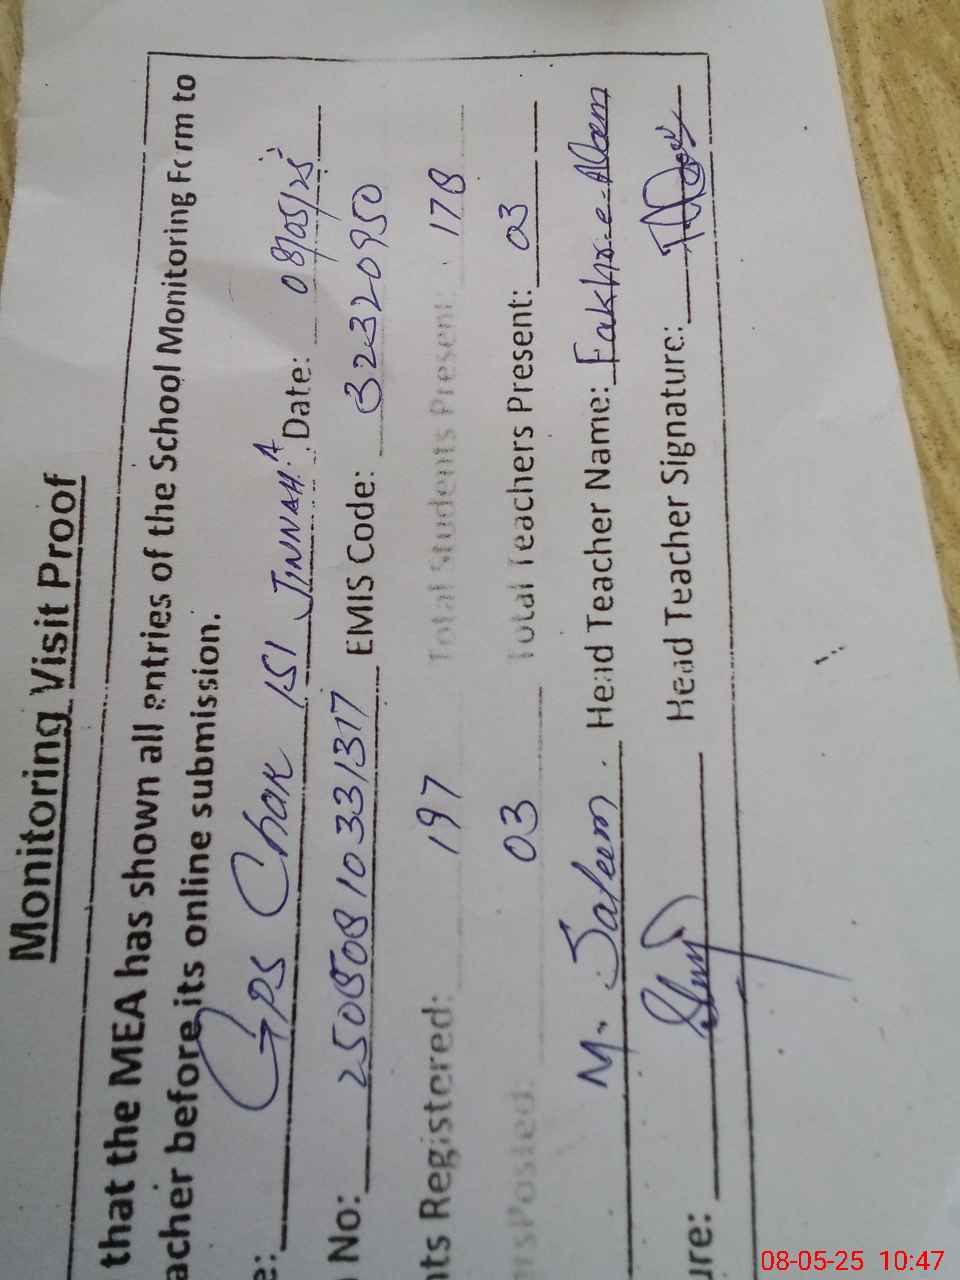 Monitoring Visit Proof
that the MEA has shown all entries of the School Monitoring Form to
acher before its online submission.
e: GPS Chak 151 JINNAH.A Date: 08/05/25
No: 2505081033 1317 EMIS Code: 32320950
nts Registered: 197 Total Students Present: 178
rsPosted: 03 Total Teachers Present: 03
M. Saleem Head Teacher Name: Fakhr-e-Alam
ure: Head Teacher Signature:
08-05-25 10:47